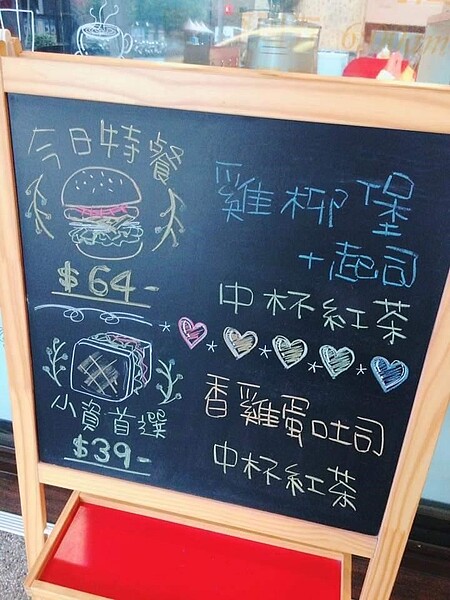 今日特餐
$64-
雞柳堡
+起司
中杯紅茶
小資首選
$39-
香雞蛋吐司
中杯紅茶